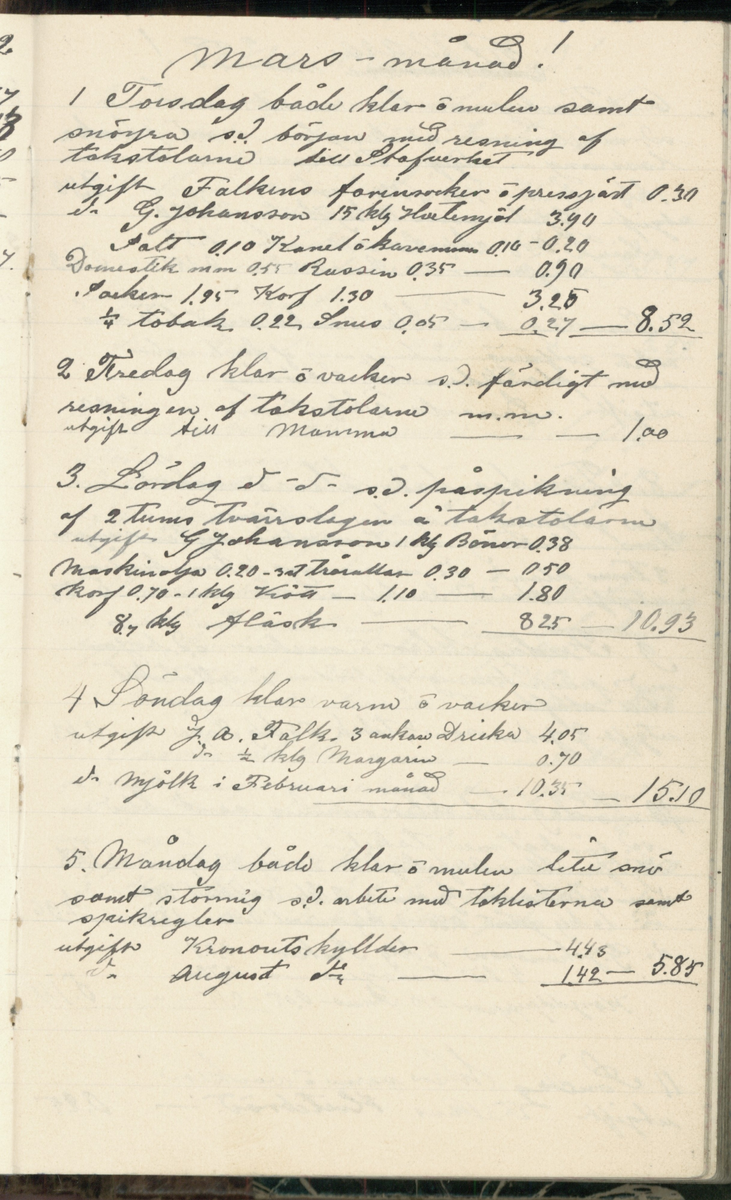 Mars-månad!
1 Torsdag både klar ö mulen samt
snöyra s.d. början med resning af
takstolarne till Stafverket
utgift Falkens farinsocker ö pressjäst 0.30
d- G. Johansson 15 klg Hvetemjöl 3.90
Salt 0.10 Kanel ö kavemum 0.10 - 0.20
Domestik mm 0.55 Russin 0.35 — 0.90
Socker 1.95 Korf 1.30 — 3.25
¼ tobak 0.22 Snus 0.05 — 0.27 — 8.52
2 Fredag klar ö vacker s.d. färdigt med
resningen af takstolarne m.m.
utgift till Mamma — — 1.00
3. Lördag d -d- s.d. påspikning
af 2 tums tvärrslagen å takstolarne
utgift G Johansson 1 klg Bönor 0.38
Maskinolja 0.20 - 3 st trårullar 0.30 — 0.50
Korf 0.70 - 1 klg Kött — 1.10 — 1.80
8,7 klg fläsk — 8 25 — 10.93
4 Söndag klar varm ö vacker
utgift J. A. Falk. 3 ankare Dricka 4.05
d- ½ klg Margarin — 0.70
d- Mjölk i Februari månad — 10.35 — 15.10
5. Måndag både klar ö mulen lite snö
samt stormig s.d. arbete med taklisterna samt
spikregler
utgift Kronoutskyllder — 4.43
d- August d:o — 1.42 — 5.85